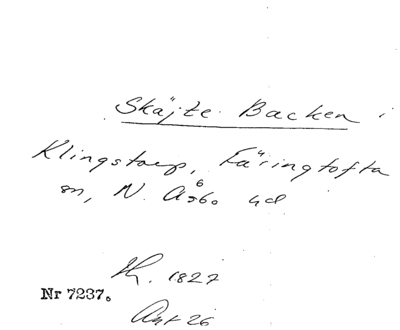 Skäjte Backen i
Klingstorp, Färingtofta
sn, N. Åsbo hd
1827
Nr 7237.
Akt 26